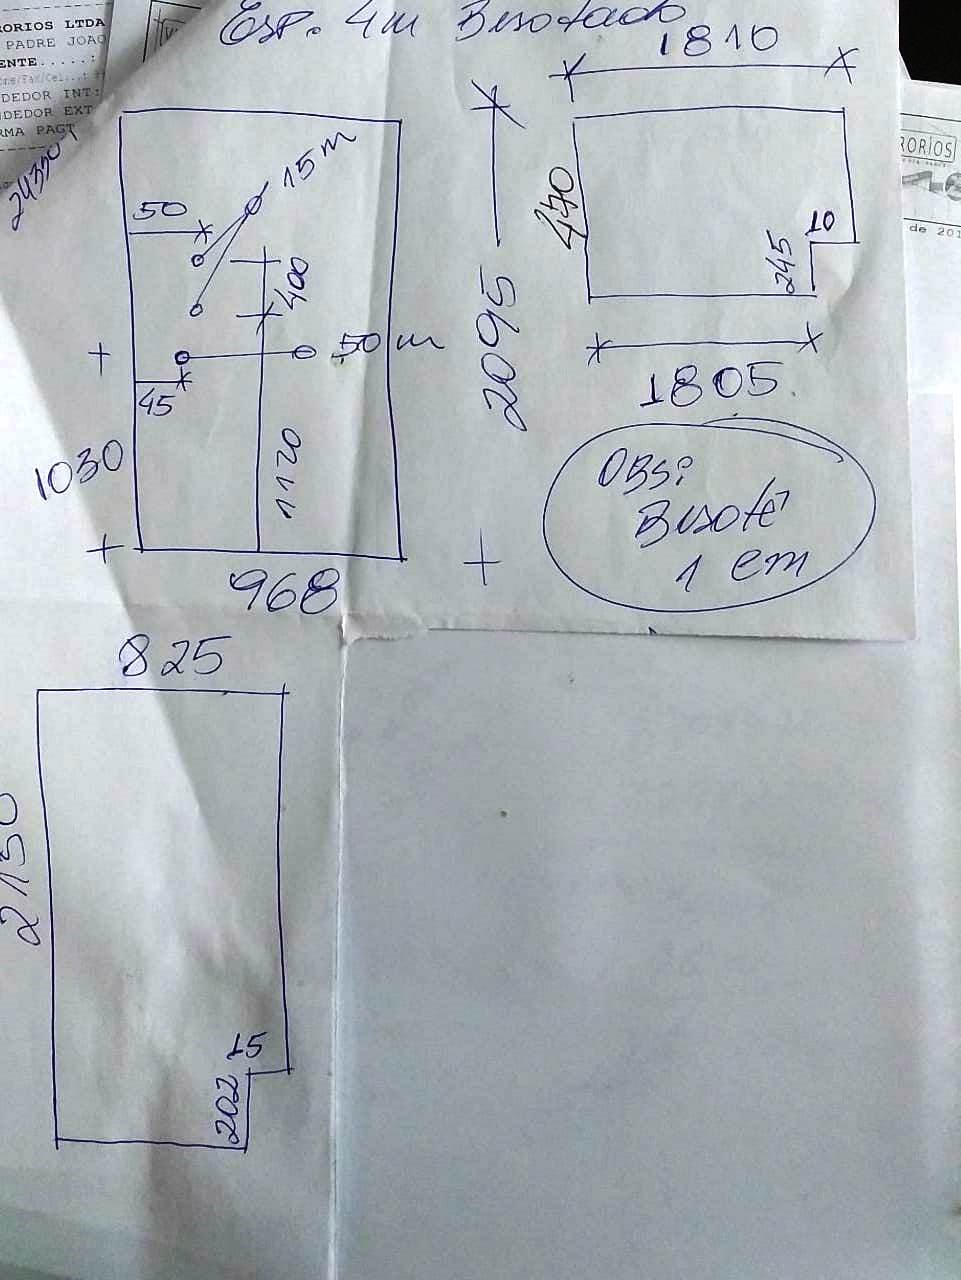 RORIOS LTDA
PADRE JOAO
ENTE.....:
DEDOR INT:
DEDOR EXT
RMA PAGT
Esp. 4m Bisotado
1810
15m
50
400
2095
10
245
50m
45
1805
1030
1120
OBS:
Bisotê
1 em
968
825
2150
15
202
RORIOS
de 201